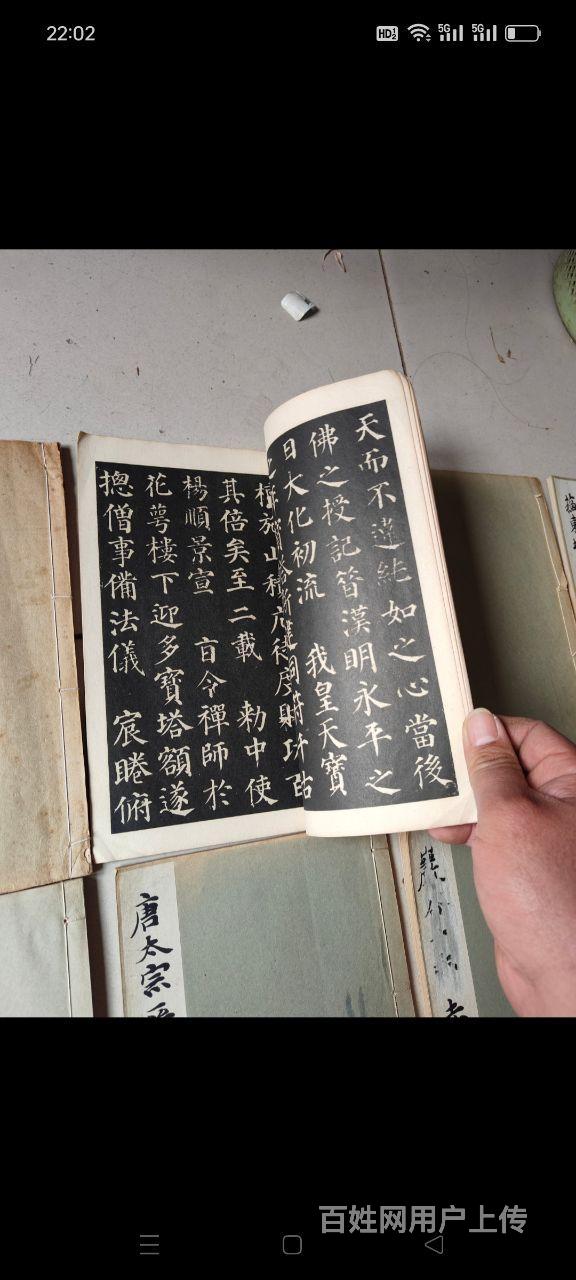 22:02
HD
5G
5G
天而不違純如之心當後
佛之授記昔漢明永平之
日大化初流 我皇天寶
檀施山積庀徒度財功百
其倍矣至二載 勅中使
楊順景宣 旨令禪師於
花萼樓下迎多寶塔額遂
揔僧事備法儀 宸睠俯
唐太宗
百姓网用户上传